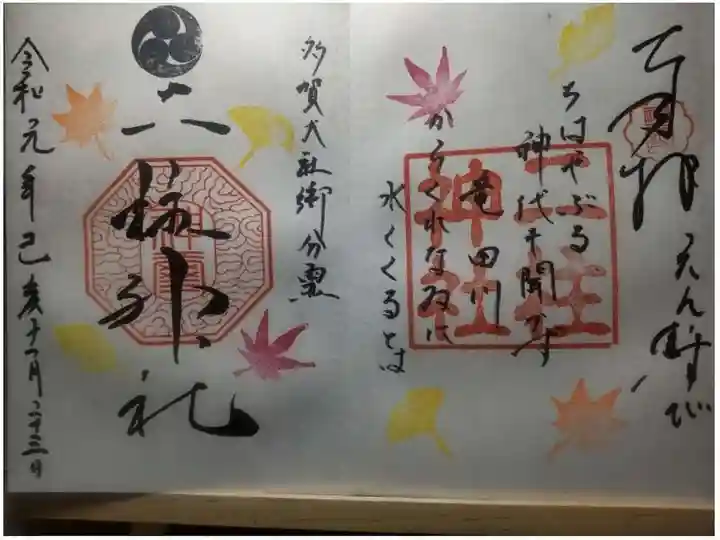 奉拝 えん結び
ちはやぶる
神代も聞かず
竜田川
からくれなゐに
水くくるとは
二柱
神社
多賀大社御分霊
神社
令和元年己亥十一月二十三日